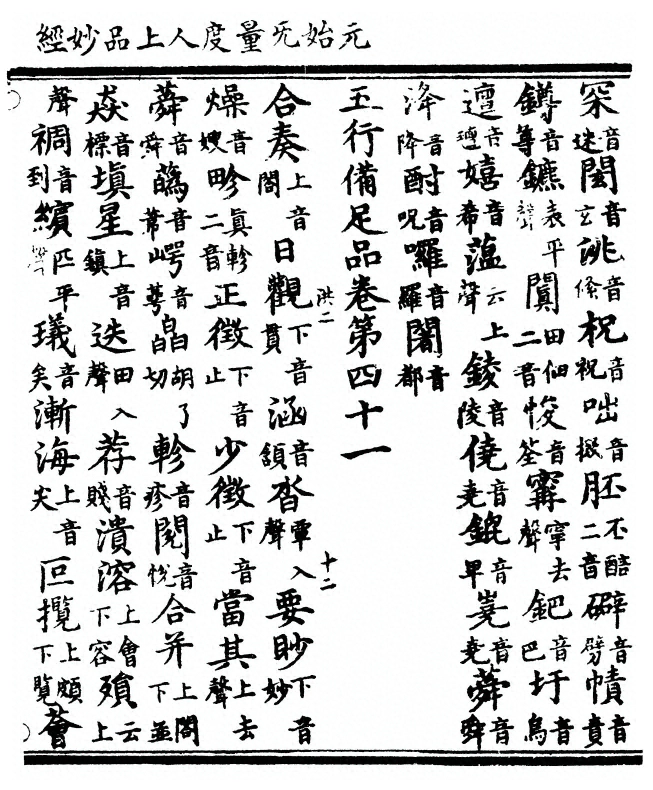 元始旡量度人上品妙經
冞音迷閿音玄洮音條柷音祝咄音掇胚不酷二音礔音劈幩音賁
鐏音尊鑣表平聲闐田佃二音悛音筌寗寧去聲鈀音巴圩音烏
邅音嬉音希薀云上聲錂音陵僥音堯錕音早嶤音堯蕣音舜
洚音降酎音呪囉音羅闍音都
五行備足品卷第四十一
洪二
十二
合奏上音閤日觀下音貫涵音頷沓覃入聲要眇下音妙
燥音嫂畛真軫二音正徵下音止少徵下音止當其上去聲
蕣音舜蔿音葦崿音萼皛胡了切軫音疹閱音悅合并上閤下並
猋音標塡星上音鎮迭田入聲荐音賤潰溶上會下容殞云上
聲裯音到繽匹平聲音矣漸海上音尖叵攬上頗下覽薈